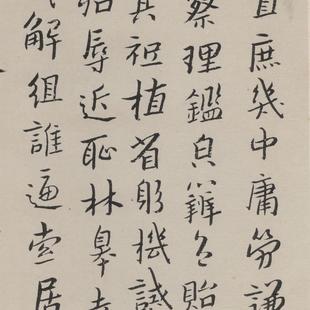 直庶幾中庸勞謙
察理鑑皃辯色貽
其祗植省躬譏誡
殆辱近恥林皋幸
解組誰逼索居